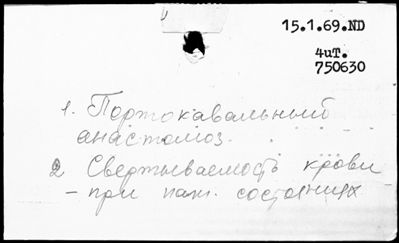 15.1.69.ND
4иT.
750630
1. Портокавальный
анастомоз.
2 Свертываемость крови
– при пат. состояниях